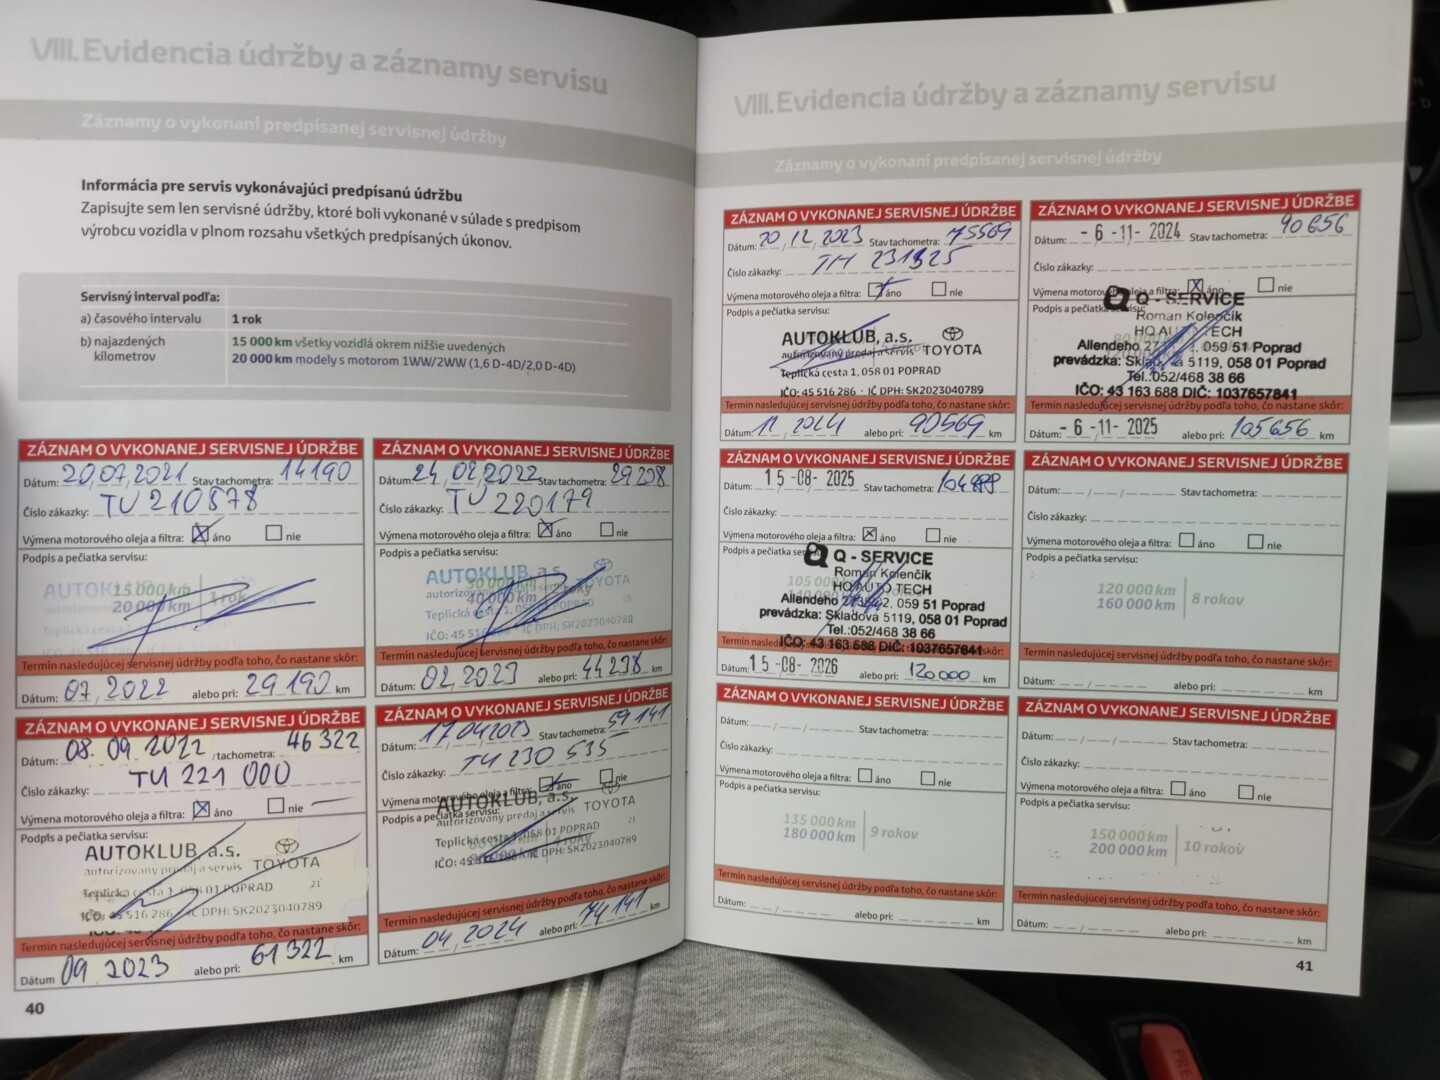 VIII. Evidencia údržby a záznamy servisu
Záznamy o vykonaní predpísanej servisnej údržby
Informácia pre servis vykonávajúci predpísanú údržbu
Zapisujte sem len servisné údržby, ktoré boli vykonané v súlade s predpisom
výrobcu vozidla v plnom rozsahu všetkých predpísaných úkonov.
Servisný interval podľa:
a) časového intervalu 1 rok
b) najazdených kilometrov 15 000 km všetky vozidlá okrem nižšie uvedených
20 000 km modely s motorom 1WW/2WW (1,6 D-4D/2,0 D-4D)
ZÁZNAM O VYKONANEJ SERVISNEJ ÚDRŽBE
Dátum: 20,07,2021 Stav tachometra: 14190
Číslo zákazky: TU 210578
Výmena motorového oleja a filtra: áno nie
Podpis a pečiatka servisu:
AUTOKLUB
15 000 km
20 000 km 1 rok
Teplická cesta 1,
Termín nasledujúcej servisnej údržby podľa toho, čo nastane skôr:
Dátum: 07, 2022 alebo pri: 29190 km
ZÁZNAM O VYKONANEJ SERVISNEJ ÚDRŽBE
Dátum: 24,02,2022 Stav tachometra: 29238
Číslo zákazky: TU 220179
Výmena motorového oleja a filtra: áno nie
Podpis a pečiatka servisu:
AUTOKLUB, a.s.
30 000 km
40 000 km 2 roky
TOYOTA
Teplická cesta 1, 058 01 POPRAD
IČO: 45 516 IČ DPH: SK2023040789
Termín nasledujúcej servisnej údržby podľa toho, čo nastane skôr:
Dátum: 02, 2023 alebo pri: 44238 km
ZÁZNAM O VYKONANEJ SERVISNEJ ÚDRŽBE
Dátum: 08.09.2022 /tachometra: 46322
Číslo zákazky: TU 221 000
Výmena motorového oleja a filtra: áno nie
Podpis a pečiatka servisu:
AUTOKLUB, a.s.
autorizovaný predaj a servis TOYOTA
Teplická cesta 1, 058 01 POPRAD 21
IČO: 45 516 286 IČ DPH: SK2023040789
Termín nasledujúcej servisnej údržby podľa toho, čo nastane skôr:
Dátum 09 2023 alebo pri: 61322 km
ZÁZNAM O VYKONANEJ SERVISNEJ ÚDRŽBE
Dátum: 17042023 Stav tachometra: 59141
Číslo zákazky: TU 230 535
Výmena motorového oleja a filtra: áno nie
Podpis a pečiatka servisu:
AUTOKLUB, a.s.
autorizovaný predaj a servis TOYOTA
Teplická cesta 1, 058 01 POPRAD
IČO: 45 286 IČ DPH: SK2023040789
Termín nasledujúcej servisnej údržby podľa toho, čo nastane skôr:
Dátum: 04, 2024 alebo pri: 74141 km
40
VIII. Evidencia údržby a záznamy servisu
Záznamy o vykonaní predpísanej servisnej údržby
ZÁZNAM O VYKONANEJ SERVISNEJ ÚDRŽBE
Dátum: 20,12,2023 Stav tachometra: 75569
Číslo zákazky:
Výmena motorového oleja a filtra: áno nie
Podpis a pečiatka servisu:
AUTOKLUB, a.s.
autorizovaný predaj a servis TOYOTA
Teplická cesta 1, 058 01 POPRAD
IČO: 45 516 286 · IČ DPH: SK2023040789
Termín nasledujúcej servisnej údržby podľa toho, čo nastane skôr:
Dátum: 12, 2024 alebo pri: 90569 km
ZÁZNAM O VYKONANEJ SERVISNEJ ÚDRŽBE
Dátum: - 6 -11- 2024 Stav tachometra: 90656
Číslo zákazky:
Výmena motorového oleja a filtra: áno nie
Podpis a pečiatka servisu:
Q - SERVICE
Roman Kolenčik
HQ AUTO TECH
Allendeho 059 51 Poprad
prevádzka: Skladová 5119, 058 01 Poprad
Tel.:052/468 38 66
IČO: 43 163 688 DIČ: 1037657841
Termín nasledujúcej servisnej údržby podľa toho, čo nastane skôr:
Dátum: - 6 -11- 2025 alebo pri: 105656 km
ZÁZNAM O VYKONANEJ SERVISNEJ ÚDRŽBE
Dátum: 15 -08- 2025 Stav tachometra:
Číslo zákazky:
Výmena motorového oleja a filtra: áno nie
Podpis a pečiatka servisu:
Q - SERVICE
Roman Kolenčik
HQ AUTO TECH
Allendeho 059 51 Poprad
prevádzka: Skladová 5119, 058 01 Poprad
Tel.:052/468 38 66
IČO: 43 163 688 DIČ: 1037657841
Termín nasledujúcej servisnej údržby podľa toho, čo nastane skôr:
Dátum: 15 -08- 2026 alebo pri: 120000 km
ZÁZNAM O VYKONANEJ SERVISNEJ ÚDRŽBE
Dátum: Stav tachometra:
Číslo zákazky:
Výmena motorového oleja a filtra: áno nie
Podpis a pečiatka servisu:
120 000 km
160 000 km 8 rokov
Termín nasledujúcej servisnej údržby podľa toho, čo nastane skôr:
Dátum: alebo pri: km
ZÁZNAM O VYKONANEJ SERVISNEJ ÚDRŽBE
Dátum: Stav tachometra:
Číslo zákazky:
Výmena motorového oleja a filtra: áno nie
Podpis a pečiatka servisu:
135 000 km
180 000 km 9 rokov
Termín nasledujúcej servisnej údržby podľa toho, čo nastane skôr:
Dátum: alebo pri: km
ZÁZNAM O VYKONANEJ SERVISNEJ ÚDRŽBE
Dátum: Stav tachometra:
Číslo zákazky:
Výmena motorového oleja a filtra: áno nie
Podpis a pečiatka servisu:
150 000 km
200 000 km 10 rokov
Termín nasledujúcej servisnej údržby podľa toho, čo nastane skôr:
Dátum: alebo pri: km
41